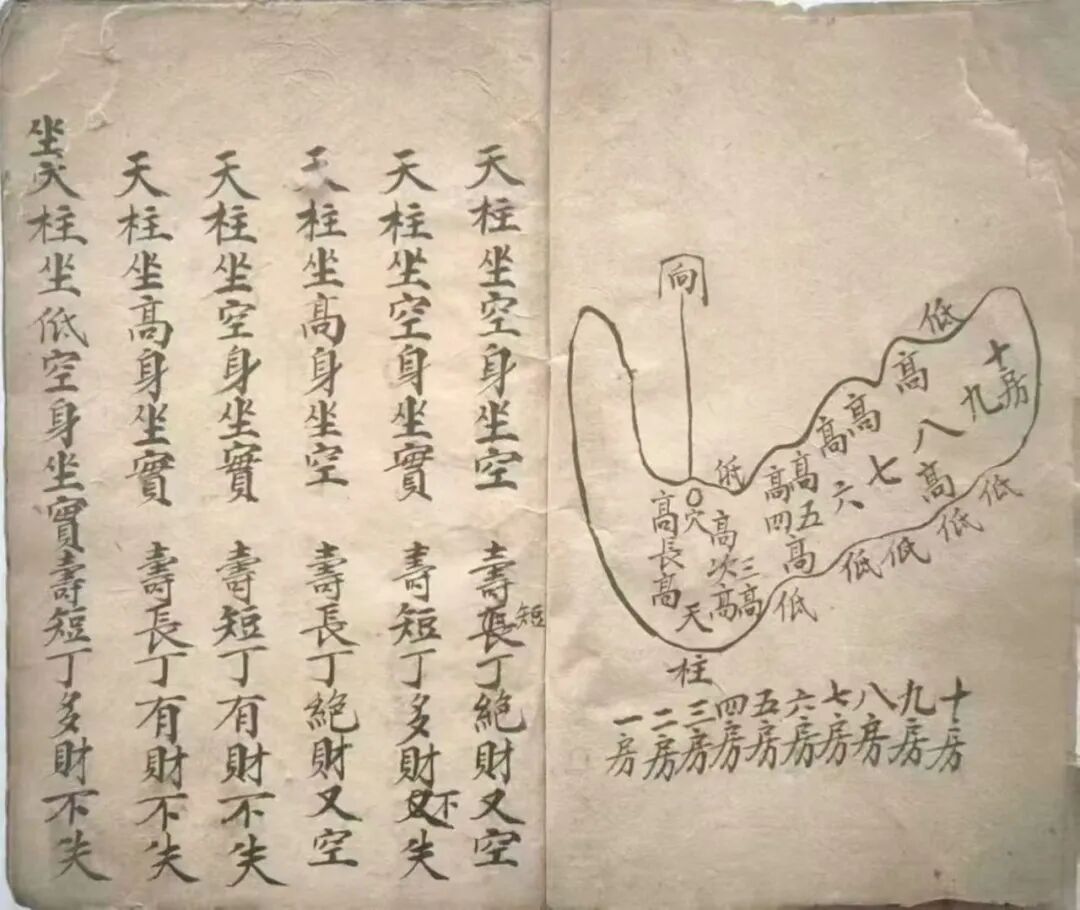 向
低
十房
九
八
七
六
五
四
高
高
高
高
高
高
高
低
低
低
低
低
低
穴
高長高
高次高
三高
天柱
十房
九房
八房
七房
六房
五房
四房
三房
二房
一房
天柱坐空身坐空 壽長短丁絕財又空
天柱坐空身坐實 壽短丁多財又不失
天柱坐高身坐空 壽長丁絕財又空
天柱坐空身坐實 壽短丁有財不失
天柱坐高身坐實 壽長丁有財不失
坐天柱坐低空身坐實壽短丁多財不失